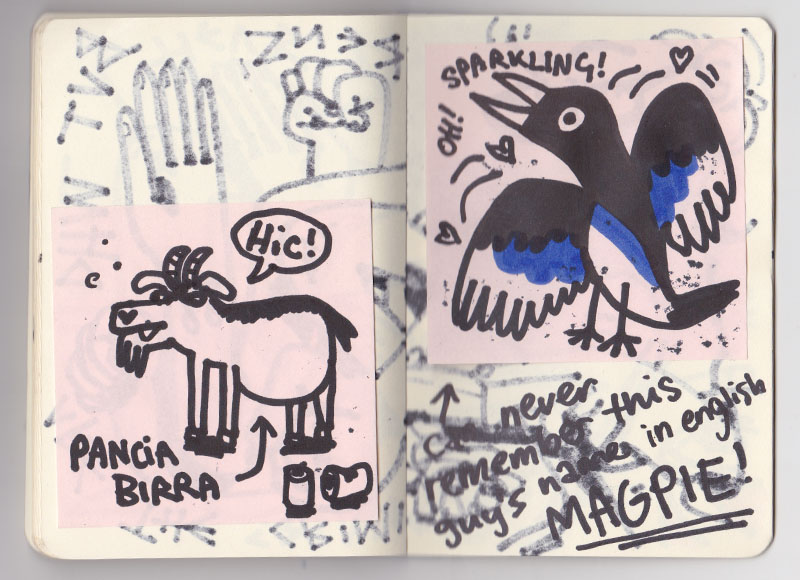 Hic!
PANCIA
BIRRA
OH!
SPARKLING!
never
remember this
guy's name in english
MAGPIE!